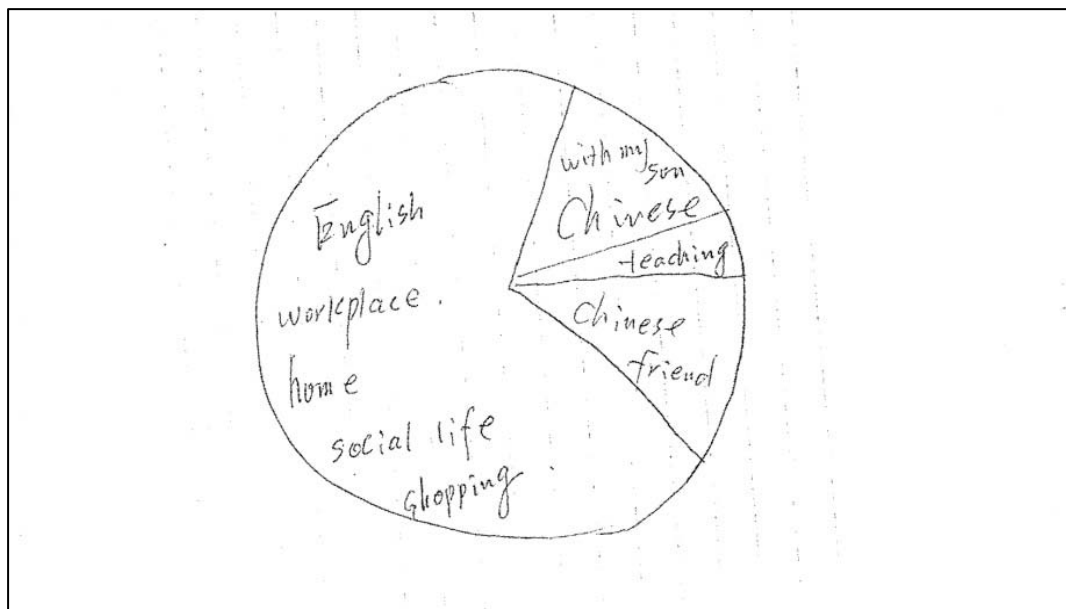 English
workplace.
home
social life
shopping.
with my
son
Chinese
teaching
Chinese
friend